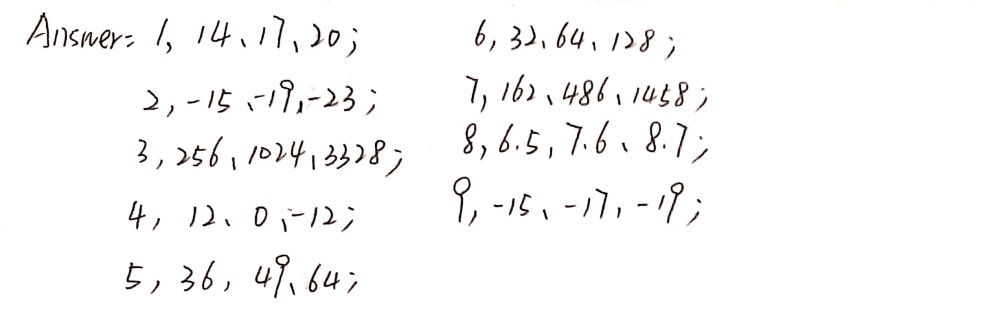 Answer: 1, 14、17、20;
2, -15、-19、-23;
3, 256、1024、3328;
4, 12、0、-12;
5, 36, 49、64;
6, 32、64、128;
7, 162、486、1458;
8, 6.5, 7.6、8.7;
9, -15、-17、-19;